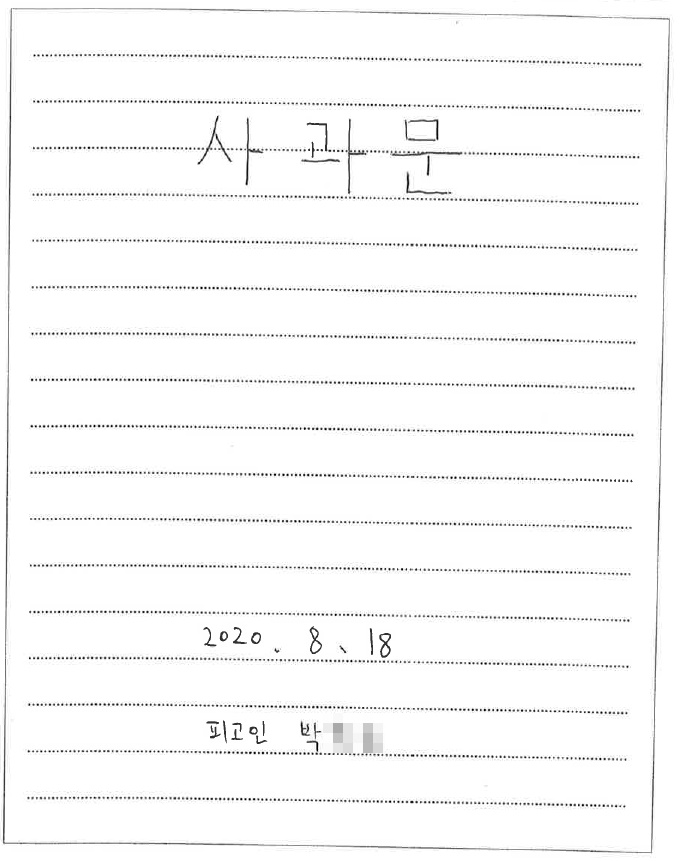 사과문
2020. 8. 18
피고인 박